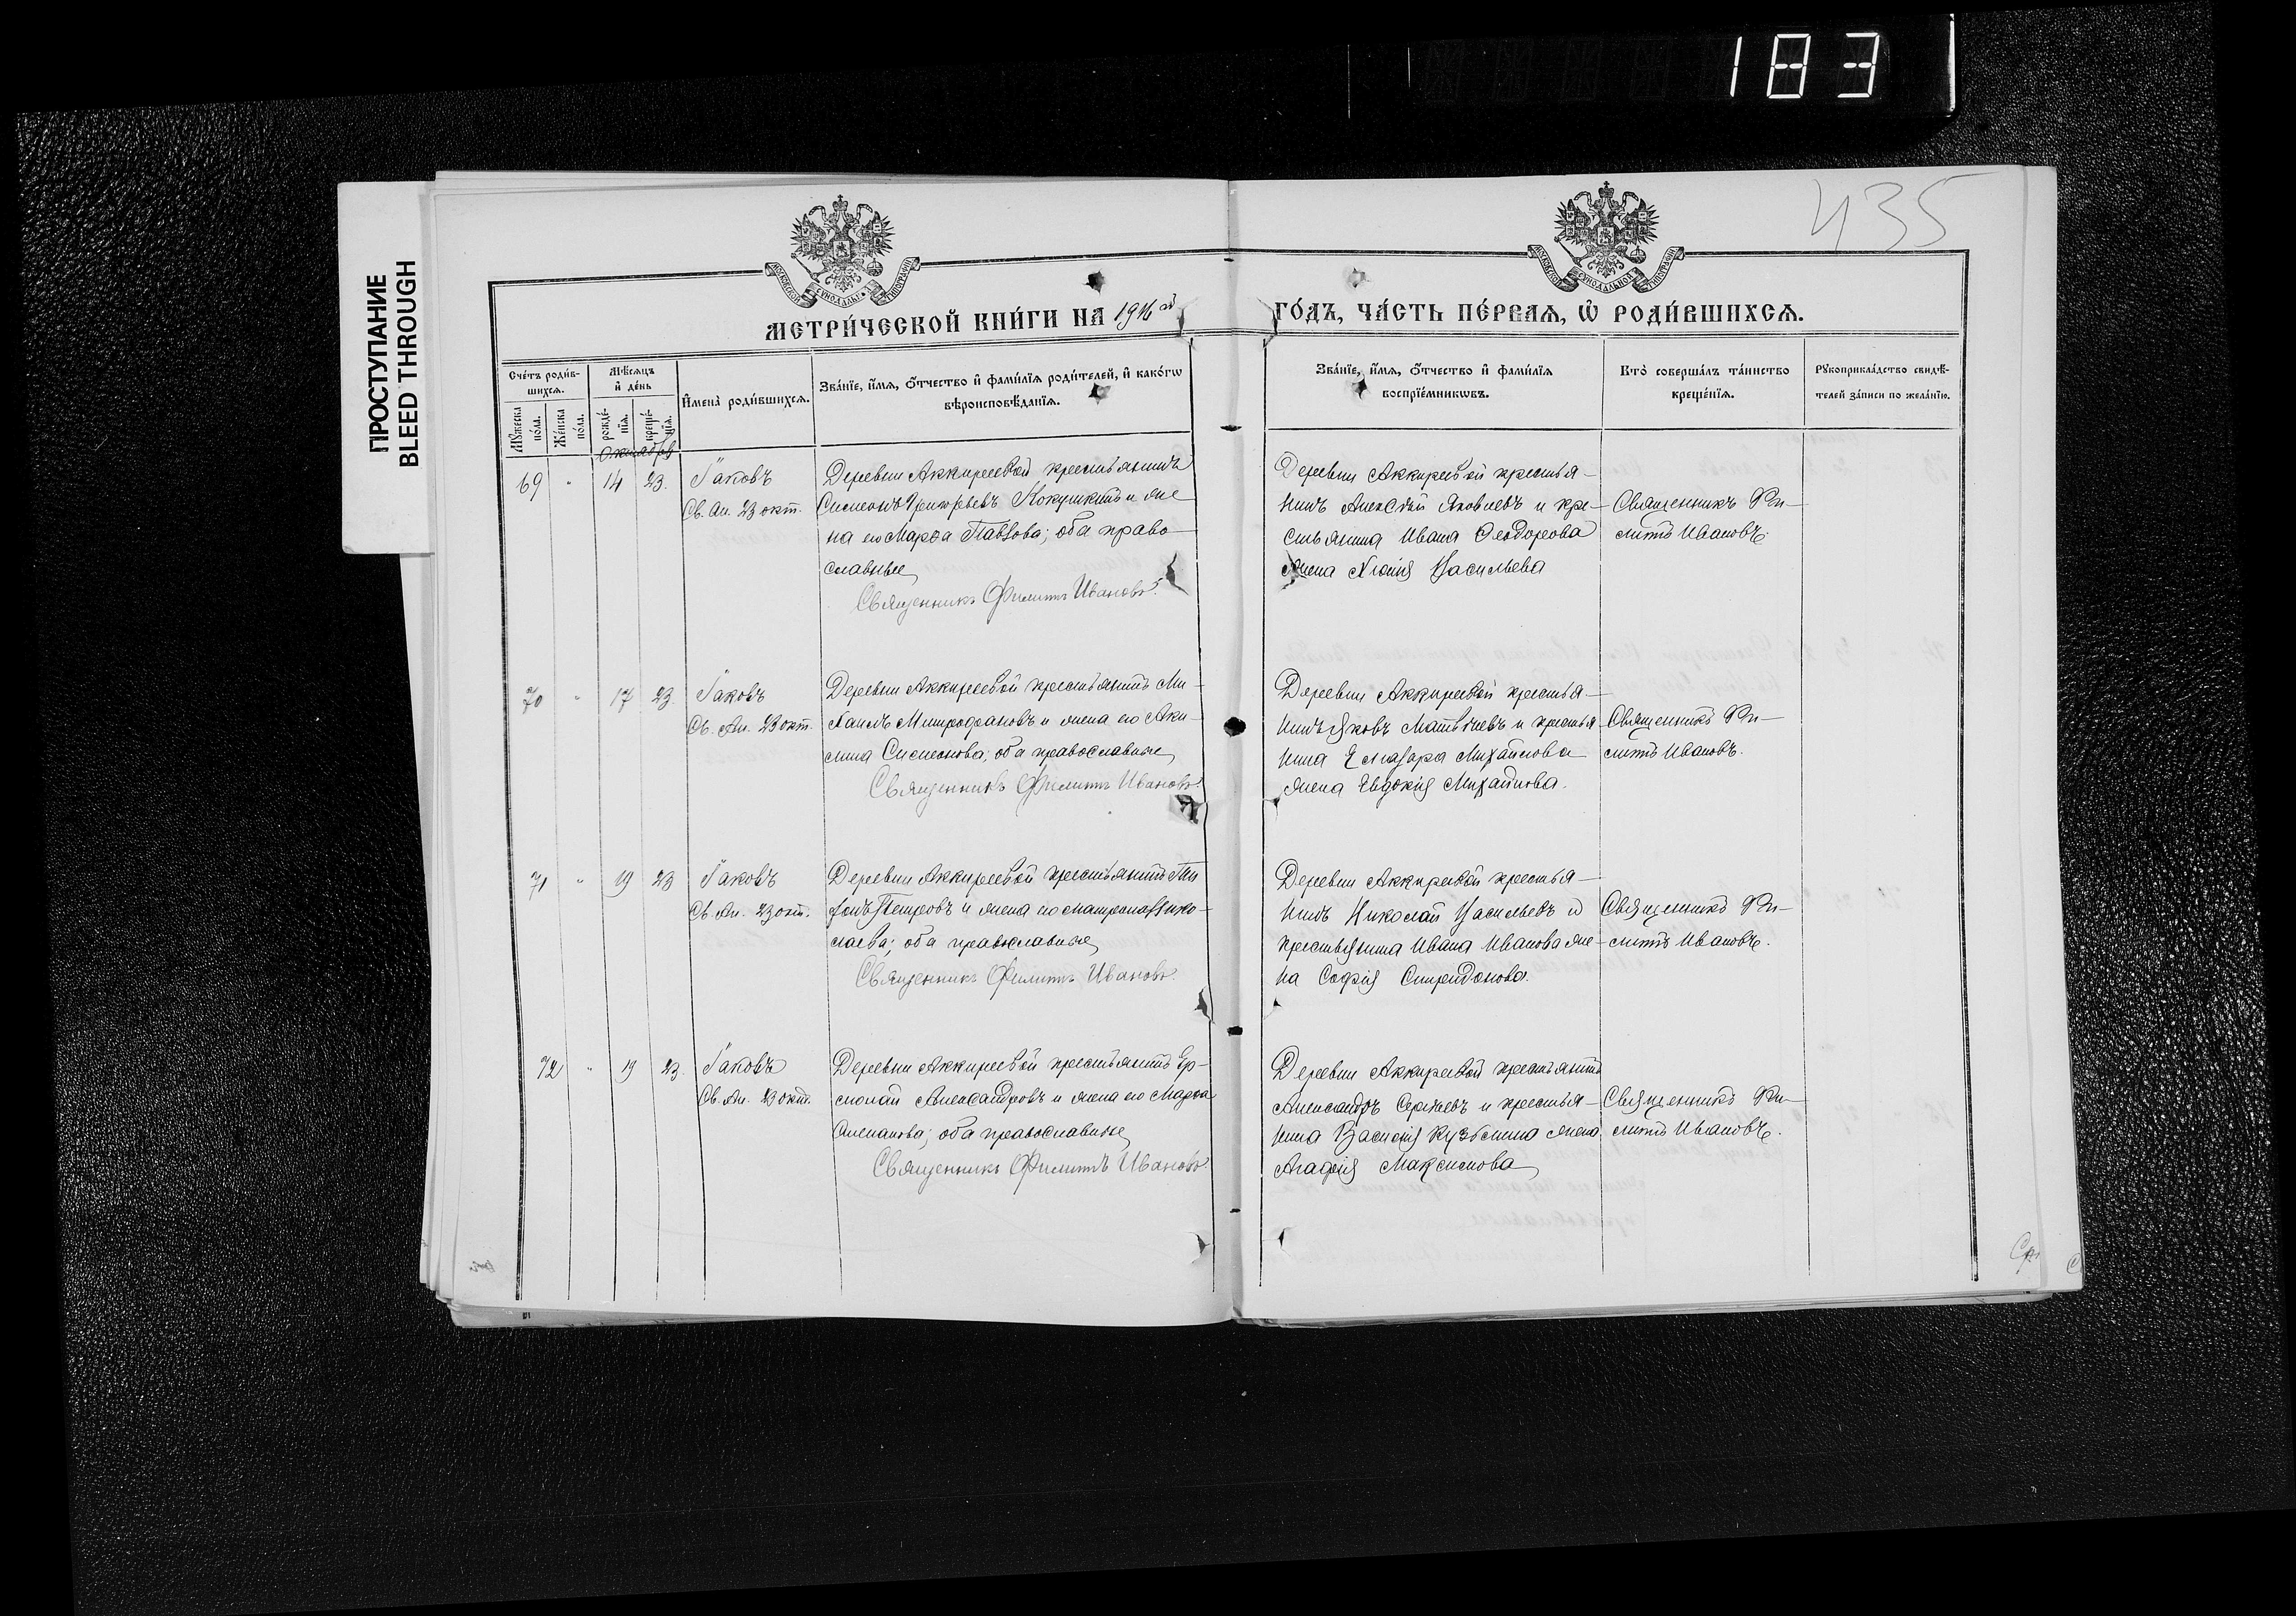 183
ПРОСТУПАНИЕ
BLEED THROUGH
435
МОСКОВСКОЙ СѴНОДАЛЬНОЙ ТИПОГРАФІИ
МОСКОВСКОЙ СѴНОДАЛЬНОЙ ТИПОГРАФІИ
МЕТРИ́ЧЕСКОЙ КНИ́ГИ НА 1916 ой ГО́ДЪ, ЧА́СТЬ ПЕ́РВАЯ, Ѡ РОДИ́ВШИХСЯ.
Сче́тъ роди́в-
шихся.
Мꙋжеска по́ла.
Же́нска по́ла.
Мѣ́сяцъ и де́нь
рожде́-нїя.
креще́-нїя.
Имена̀ роди́вшихся.
Зва́нїе, и́мя, о́тчество и фами́лїя роди́телей, и како́гѡ
вѣроисповѣ́данїя.
Зва́нїе, и́мя, о́тчество и фами́лїя
воспрїе́мникѡвъ.
Кто̀ соверша́лъ та́инство
креще́нїя.
Рꙋкоприкла́дство свидѣ́-
телей за́писи по жела́нїю.
Октябрь
69 " 14 23. Іаковъ
Св. Ап. 23 окт.
Деревни Аккиреевой крестьянинъ
Симеонъ Григорьевъ и же-
на его Марѳа Павлова; оба право-
славные
Священникъ Филиппъ Ивановъ.
Деревни Аккиреевой крестья-
нинъ Алексѣй Яковлевъ и кре-
стьянина Ивана Ѳеодорова
жена Ксенія Васильева
Священникъ Фи-
липпъ Ивановъ.
70 " 17 23. Іаковъ
Св. Ап. 23 окт.
Деревни Аккиреевой крестьянинъ Ми-
хаилъ Митрофановъ и жена его Аки-
лина Симеонова; оба православные
Священникъ Филиппъ Ивановъ.
Деревни Аккиреевой крестья-
нинъ Яковъ Матвѣевъ и крестья-
нина Елеазара Михайлова
жена Евдокія Михайлова.
Священникъ Фи-
липпъ Ивановъ.
71 " 19 23 Іаковъ
Св. Ап. 23 окт.
Деревни Аккиреевой крестьянинъ
Петровъ и жена его Матрона Нико-
лаева; оба православные
Священникъ Филиппъ Ивановъ.
Деревни Аккиреевой крестья-
нинъ Николай Васильевъ и
крестьянина Ивана Иванова же-
на Софія Спиридонова.
Священникъ Фи-
липпъ Ивановъ.
72 " 19 23 Іаковъ
Св. Ап. 23 окт.
Деревни Аккиреевой крестьянинъ Ер-
молай Александровъ и жена его Марѳа
Степанова; оба православные
Священникъ Филиппъ Ивановъ.
Деревни Аккиреевой крестьянинъ
Александръ Сергѣевъ и крестья-
нина Василія Кузьмина жена
Агафія Максимова
Священникъ Фи-
липпъ Ивановъ.